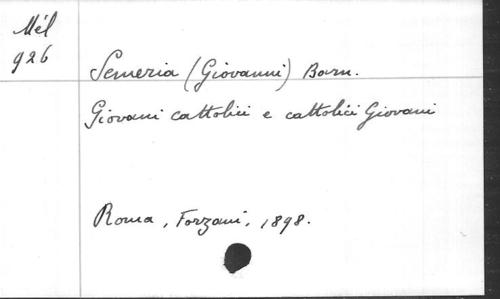 Mél
926
Semeria (Giovanni) Barn.
Giovani cattolici e cattolici Giovani
Roma, Forzani, 1898.